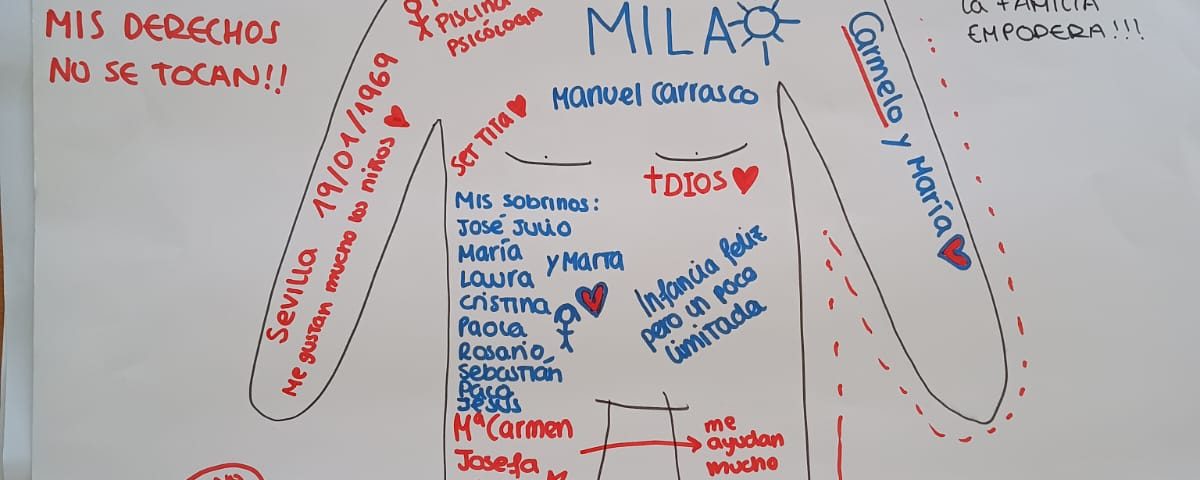 MIS DERECHOS
NO SE TOCAN!!
PISCINA
PSICÓLOGIA
MILA
Manuel Carrasco
la FAMILIA
EMPODERA!!!
Carmelo y María
Sevilla 19/01/1969
Me gustan mucho los niños
SER TITA
+DIOS
Mis sobrinos:
José Julio
María
y Marta
Laura
Cristina
Paola
Rosario,
Sebastián
Paco
Jesús
Mª Carmen
Josefa
Infancia feliz
pero un poco
limitada
me
ayudan
mucho